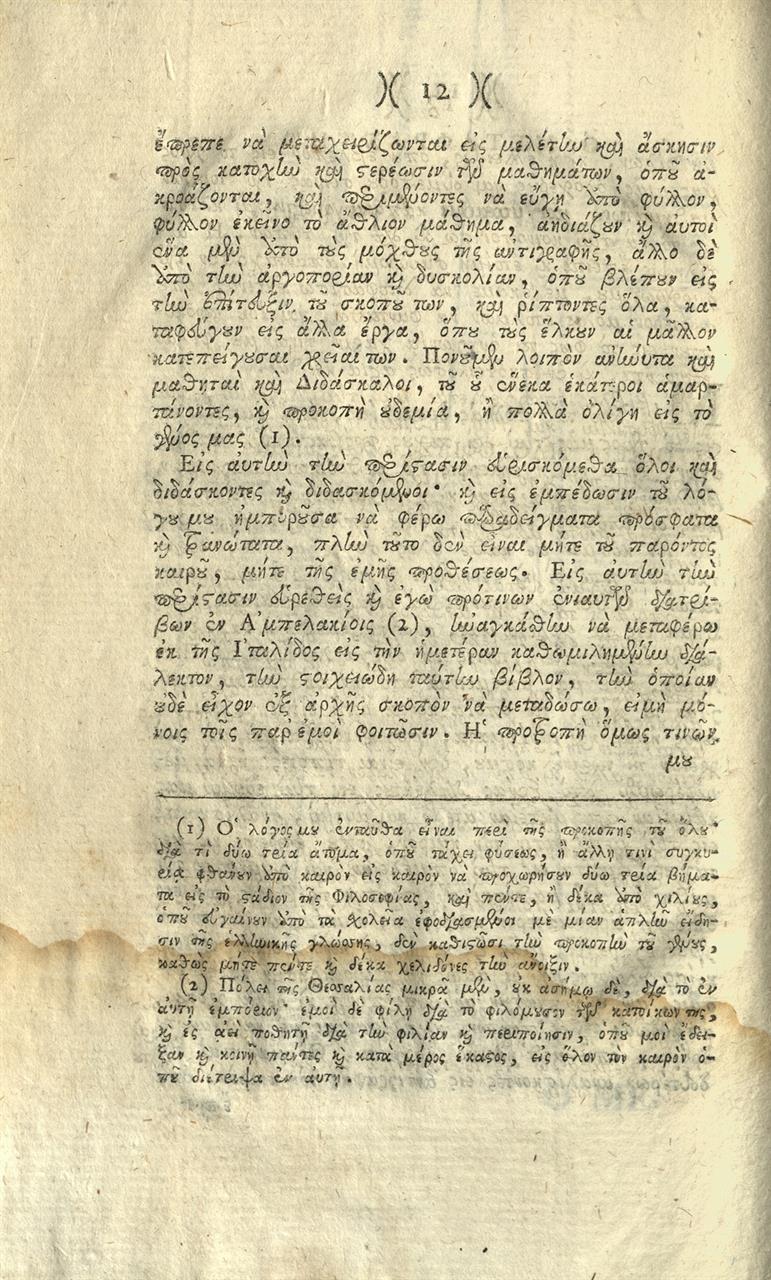 )( 12 )(
ἔπρεπε νὰ μεταχειρίζωνται εἰς μελέτην καὶ ἄσκησιν
πρὸς κατοχὴν καὶ στερέωσιν τῶν μαθημάτων, ὁποῦ ἀ-
κροάζονται, καὶ περιμένοντες νὰ εὔγῃ ἀπὸ φύλλον,
φύλλον ἐκεῖνο τὸ ἄθλιον μάθημα, ἀηδιάζουν καὶ αὐτοὶ
ἕνα μὲν ἀπὸ τοὺς μόχθους τῆς ἀντιγραφῆς, ἄλλο δὲ
ἀπὸ τὴν ἀργοπορίαν καὶ δυσκολίαν, ὁποῦ βλέπουν εἰς
τὴν ἐπίτευξιν τοῦ σκοποῦ των, καὶ ῥίπτοντες ὅλα, κα-
ταφεύγουν εἰς ἄλλα ἔργα, ὅπου τοὺς ἕλκουν αἱ μᾶλλον
κατεπείγουσαι χρεῖαί των. Πονοῦμεν λοιπὸν ἀνήνυτα καὶ
μαθηταὶ καὶ Διδάσκαλοι, τοῦ οὗ ἕνεκα ἑκάτεροι ἁμαρ-
τάνοντες, καὶ προκοπὴ οὐδεμία, ἢ πολλὰ ὀλίγη εἰς τὸ
γένος μας (1).
Εἰς αὐτὴν τὴν περίστασιν εὑρισκόμεθα ὅλοι καὶ
διδάσκοντες καὶ διδασκόμενοι· καὶ εἰς ἐμπέδωσιν τοῦ λό-
γου μου ἠμποροῦσα νὰ φέρω παραδείγματα πρόσφατα
καὶ ξανώτατα, πλὴν τοῦτο δὲν εἶναι μήτε τοῦ παρόντος
καιροῦ, μήτε τῆς ἐμῆς προθέσεως. Εἰς αὐτὴν τὴν
περίστασιν εὑρεθεὶς καὶ ἐγὼ πρότινων ἐνιαυτῶν διατρί-
βων ἐν Ἀμπελακίοις (2), ἠναγκάσθην νὰ μεταφέρω
ἐκ τῆς Ἰταλίδος εἰς τὴν ἡμετέραν καθωμιλημένην διά-
λεκτον, τὴν στοιχειώδη ταύτην βίβλον, τὴν ὁποίαν
οὐδὲ εἶχον ἐξ ἀρχῆς σκοπὸν νὰ μεταδώσω, εἰμὴ μό-
νοις τοῖς παρ' ἐμοὶ φοιτῶσιν. Ἡ προτροπὴ ὅμως τινῶν
μου
(1) Ὁ λόγος μου ἐνταῦθα εἶναι περὶ τῆς προκοπῆς τοῦ ὅλου·
διὰ τὶ δύω τρία ἄτομα, ὁποῦ τάχει φύσεως, ἢ ἄλλῃ τινὶ συγκυ-
ρίᾳ φθάνουν ἀπὸ καιρὸν εἰς καιρὸν νὰ προχωρήσουν δύω τρία βήμα-
τα εἰς τὸ στάδιον τῆς Φιλοσοφίας, καὶ πέντε, ἢ δέκα ἀπὸ χιλίους,
ὁποῦ εὐγαίνουν ἀπὸ τὰ σχολεῖα ἐφοδιασμένοι μὲ μίαν ἁπλῆν εἴδη-
σιν τῆς ἑλληνικῆς γλώσσης, δὲν καθιστῶσι τὴν προκοπὴν τοῦ γένους,
καθὼς μήτε πέντε καὶ δέκα χελιδόνες τὴν ἄνοιξιν.
(2) Πόλει τῆς Θεσσαλίας μικρᾷ μὲν, οὐκ ἀσήμῳ δὲ, διὰ τὸ ἐν
αὐτῇ ἐμπόριον· ἐμοὶ δὲ φίλῃ διὰ τὸ φιλόμουσον τῶν κατοίκων της,
καὶ ἐς ἀεὶ ποθητῇ διὰ τὴν φιλίαν καὶ περιποίησιν, ὁποῦ μοὶ ἔδει-
ξαν καὶ κοινῇ πάντες καὶ κατὰ μέρος ἕκαστος, εἰς ὅλον τὸν καιρὸν ὁ-
ποῦ διέτριψα ἐν αὐτῇ.